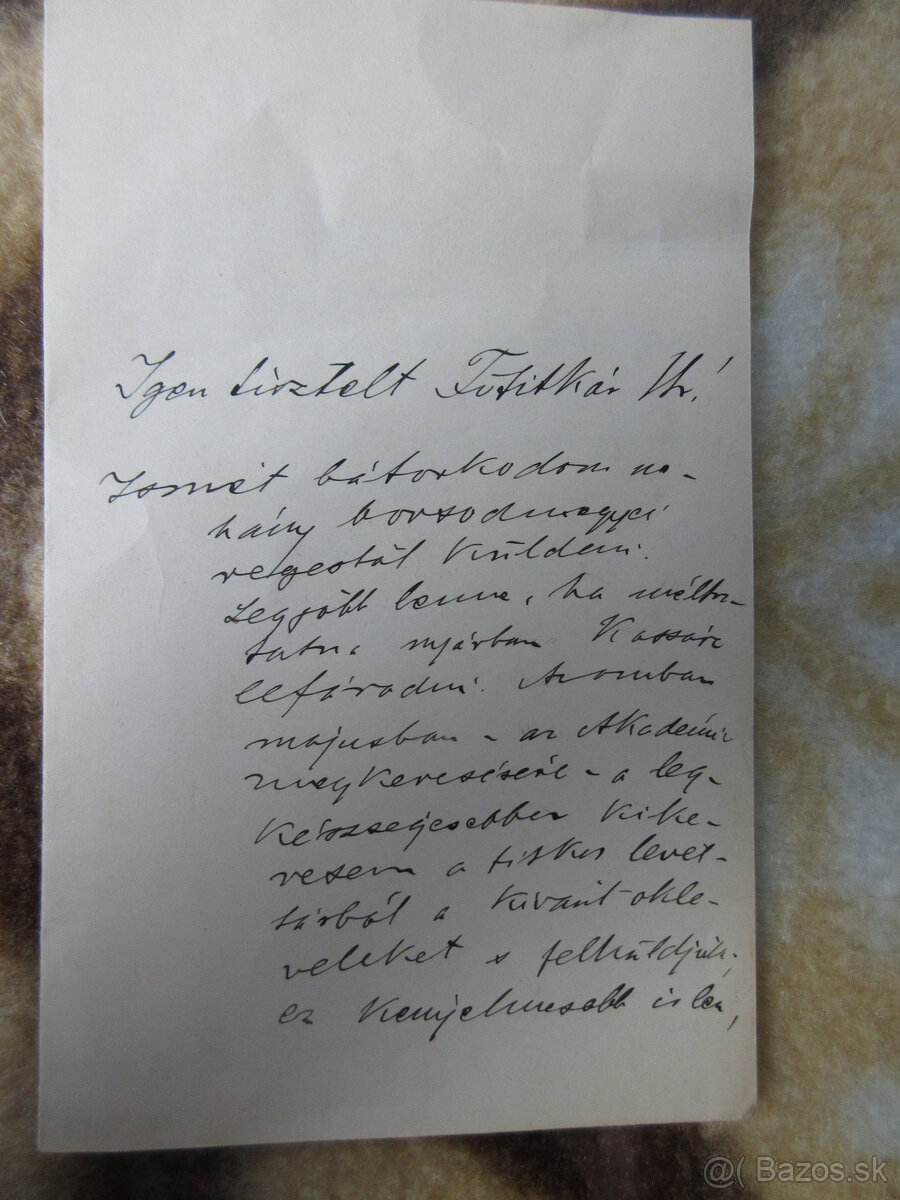 Igen tisztelt Főtitkár Úr!
Ismét bátorkodom né-
hány borsodmegyei
regestát küldeni.
Legjobb lenne, ha méltóz-
tatna nyárban Kassára
lefáradni. Azonban
majusban - az Akadémia
megkeresésére - a leg-
készségesebben kike-
resem a titkos levél-
tárból a kivánt okle-
veleket s felküldjük,
ez kényelmesebb is lesz,
@( Bazos.sk